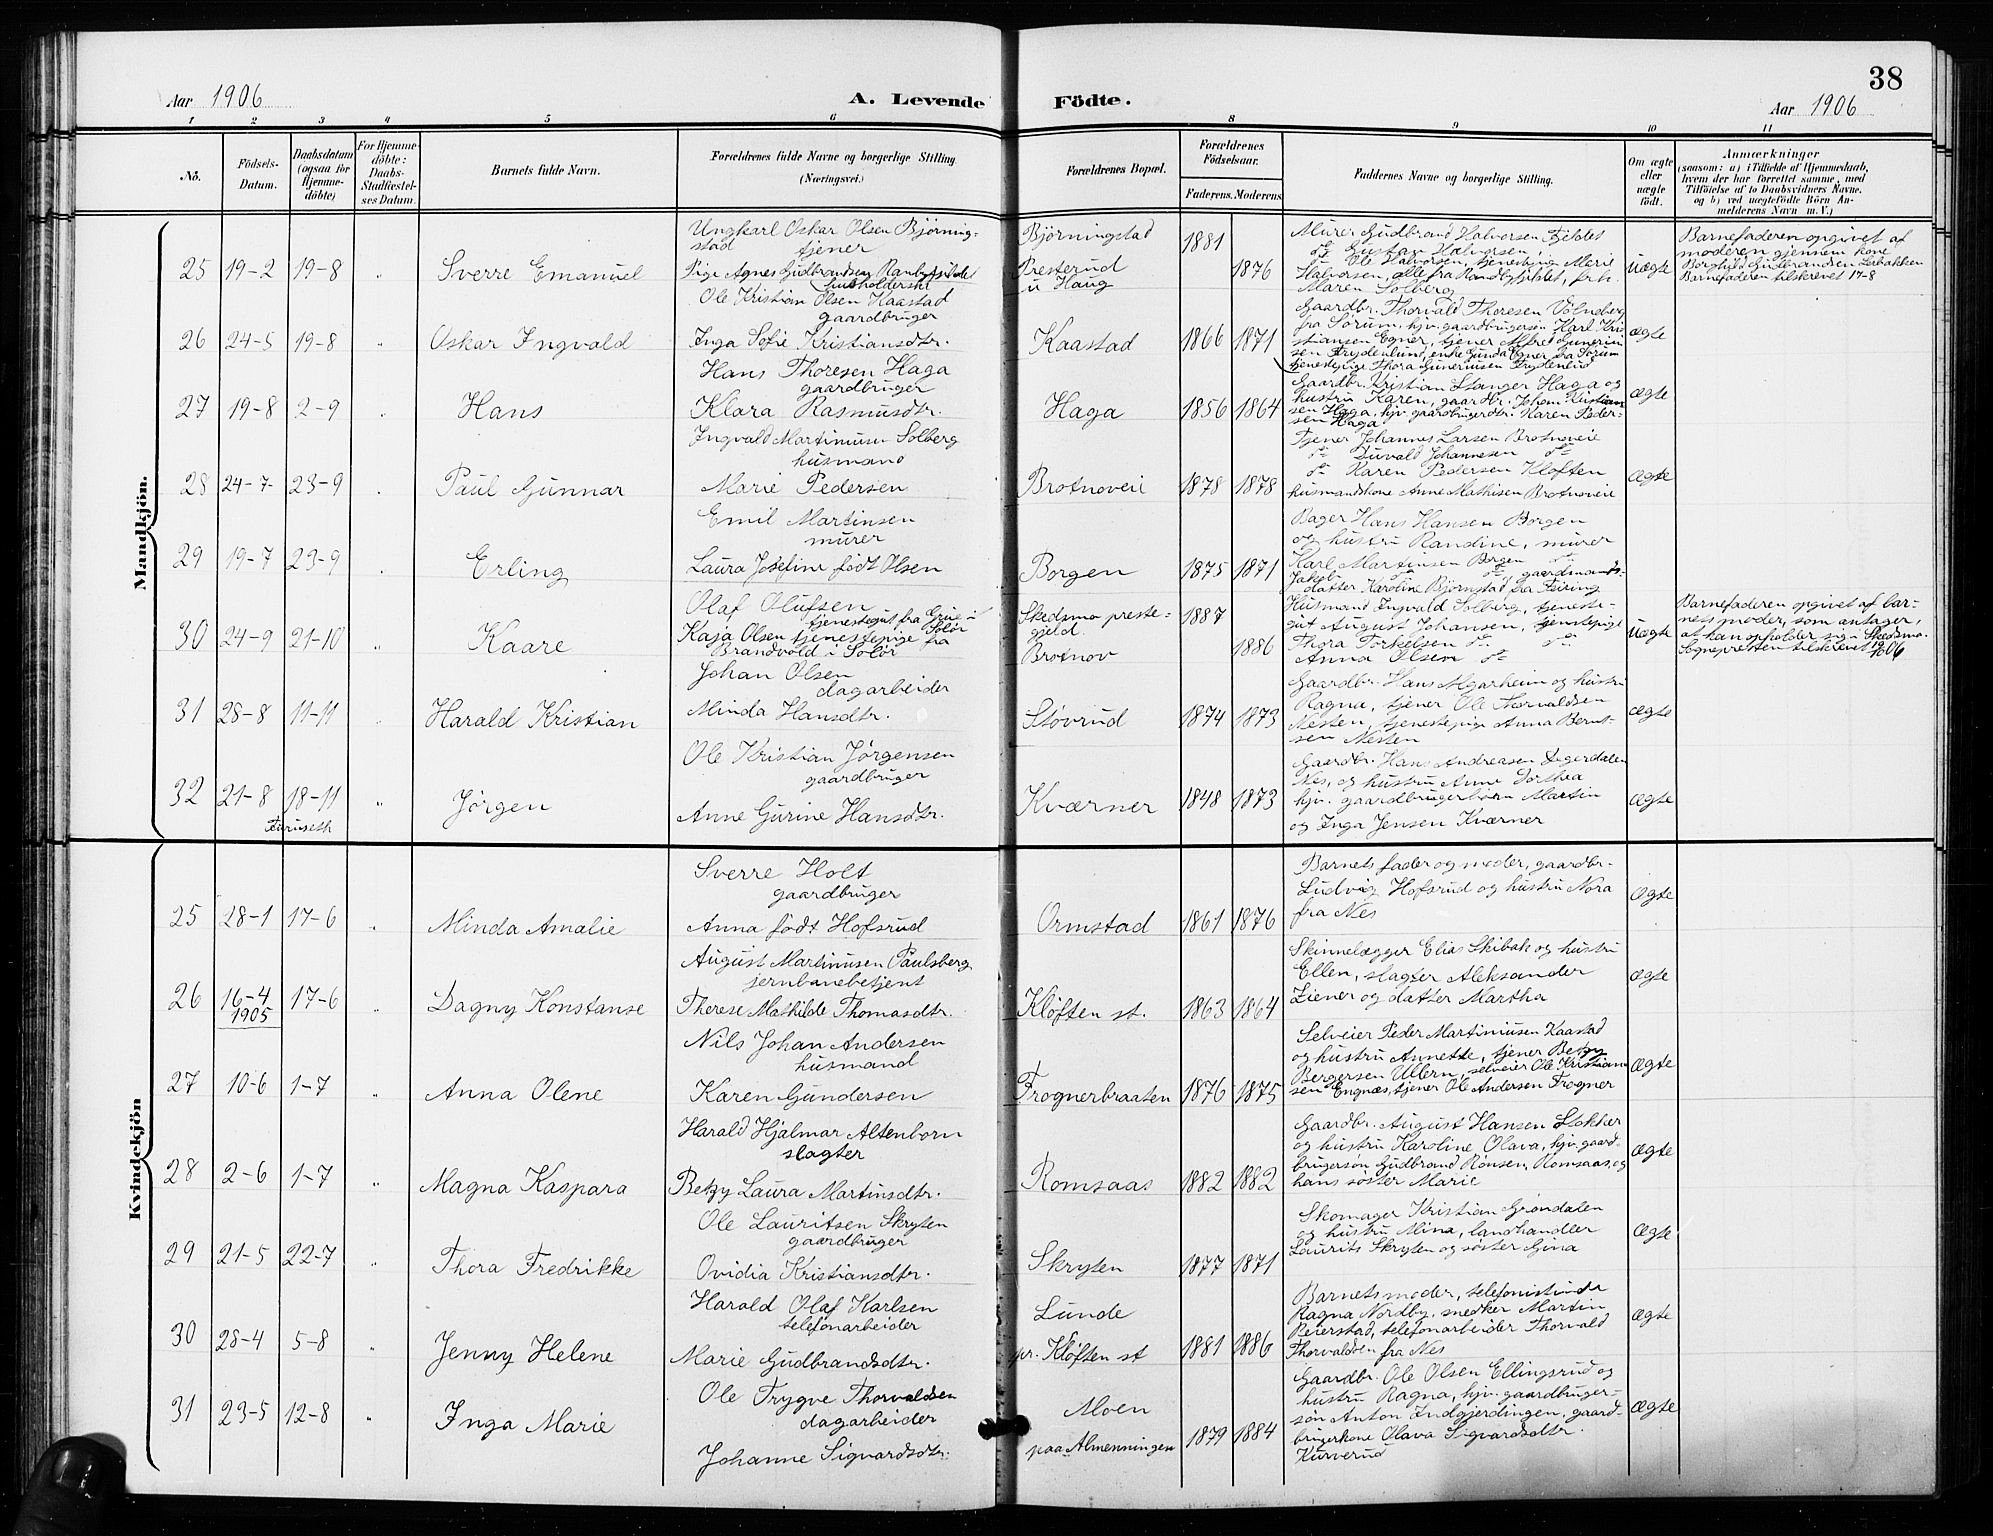 38
Aar 1906
A. Levende Födte.
Aar 1906
1 2 3 4 5 6 8 9 10 11
No.
Födsels-Datum.
Daabsdatum (ogsaa for Hjemme-döbte)
For Hjemme-döbte: Daabs-Stadfæstel-ses Datum.
Barnets fulde Navn.
Forældrenes fulde Navne og borgerlige Stilling.
(Næringsvei.)
Forældrenes Bopæl.
Forældrenes Födselsaar.
Faderens. Moderens.
Faddernes Navne og borgerlige Stilling.
Om ægte eller uægte födt.
Anmærkninger
(saasom: a) i Tilfælde af Hjemmedaab,
hvem der har forrettet samme, med
Tilföielse af to Daabsvidners Navne.
og b) ved uægtefödte Börn An-
melderens Navn m. V.)
Mandkjön.
25 19-2 19-8 Sverre Emanuel
Ungkarl Oskar Olsen Bjørning-
stad tjener
Pige Agnes Gudbrandsen Ranbyfjeldet
husholderske
Bjørningstad
Presterud
u Haug
1881 1876
Murer Gudbrand Halvorsen Fjeldet
do Gustav Halvorsen
do Ole Halvorsen, tjenestepige Marie
Halvorsen, alle fra Randbyfjeldet, frk.
Maren Solberg
uægte
Barnefaderen opgivet af
moderen gjennem kone
Borghild Gudbrandsen Labakken
Barnefaderen tilskrevet 17-8
26 24-5 19-8 Oskar Ingvald
Ole Kristian Olsen Kaastad
gaardbruger
Inga Sofie Kristiansdtr.
Kaastad 1866 1871
Gaardbr. Thorvald Thoresen Völneberg
fra Sörum, hjv. gaardbrugersøn Karl Kri-
stiansen Egner, tjener Alfred Guneriu-
sen Frydenlund, enke Gunda Egner fra Sörum
tjenestepige Thora Guneriusen Frydenlund
ægte
27 19-8 2-9 Hans
Hans Thoresen Haga
gaardbruger
Klara Rasmusdtr.
Haga 1856 1864
Gaardbr. Kristian Stanger Haga og
hustru Karen, gaardbr. Johan Kristian-
sen Haga, hjv. gaardbrugerdtr. Karen Peder-
sen Haga
ægte
28 24-7 23-9 Paul Gunnar
Ingvald Martinusen Solberg
husmand
Marie Pedersen
Brotnoveie 1878 1878
Tjener Johannes Larsen Brotnoveie
do Duvald Johannesen do
do Karen Pedersen Kløften
husmandskone Anne Mathisen Brotnoveie
ægte
29 19-7 23-9 Erling
Emil Martinsen
murer
Laura Josefine født Olsen
Borgen 1875 1871
Bager Hans Hansen Borgen
og hustru Randine, murer
Karl Martinsen Borgen do
Jakob do do gaardmands-
datter Karoline Bjørnstad fra Feiring
30 24-9 21-10 Kaare
Olaf Olufsen
tjenestegut fra Grue i
Solør
Kaja Olsen tjenestepige fra
Brandvold i Solør
Skedsmo preste-
gjeld.
Brotnov
1887 1886
Husmand Ingvald Solberg, tjeneste-
gut August Johansen, tjenstepige
Thora Torkelsen do do
Anna Olsen do
uægte
Barnefaderen opgivet af bar-
nets moder, som antager,
at han opholder sig i Skedsmo.
Sognepresten tilskrevet 19/10 06
31 28-8 11-11 Harald Kristian
Johan Olsen
dagarbeider
Minda Hansdtr.
Støvrud 1874 1873
Gaardbr. Hans Mgarheim og hustru
Ragna, tjener Ole Thorvaldsen
Nesten, tjenestepige Anna Bernt-
sen Nesten
ægte
32 21-8 18-11 Jørgen
Furuseth
Ole Kristian Jørgensen
gaardbruger
Anne Gurine Hansdtr.
Kværner 1848 1873
Gaardbr. Hans Andreasen Degerdalen
Nes, og hustru Anne Dorthea
hjv. gaardbrugerbørn Martin
og Inga Jensen Kværner
ægte
Kvindekjön
25 28-1 17-6 Minda Amalie
Sverre Holt
gaardbruger
Anna født Hofsrud
Ormstad 1861 1876
Barnets fader og moder, gaardbr.
Ludvig Hofsrud og hustru Nora
fra Nes
Ægte
26 16-4 1905 17-6 Dagny Konstanse
August Martinusen Paulsberg
jernbanebetjent
Therese Mathilde Thomasdtr.
Kløften st. 1863 1864
Skinnelægger Elias Skibak og hustru
Ellen, slagter Aleksander
Ziener og datter Martha
ægte
27 10-6 1-7 Anna Olene
Nils Johan Andersen
husmand
Karen Gundersen
Frognerbraaten 1876 1875
Selveier Peder Martiniusen Kaastad
og hustru Annette, tjener Betzy
Bergersen Ullern, selveier Ole Kristian-
sen Engnæs, tjener Ole Andersen Frogner
Ægte
28 2-6 1-7 Magna Kaspara
Harald Hjalmar Altenborn
slagter
Betzy Laura Martinsdtr.
Romsaas 1882 1882
Gaardbr. August Hansen Stokker
og hustru Karoline Olava, hjv. gaard-
brugersøn Gudbrand Rønsen, Romsaas, og
hans søster Marie
Ægte
29 21-5 22-7 Thora Fredrikke
Ole Lauritsen Skryten
gaardbruger
Ovidia Kristiansdtr.
Skryten 1877 1871
Skomager Kristian Grøndalen
og hustru Mina, landhandler
Laurits Skryten og søster Gina
Ægte
30 28-4 5-8 Jenny Helene
Harald Olaf Karlsen
telefonarbeider
Marie Gudbrandsdtr.
Lunde
pr. Kløften st 1881 1886
Barnets moder, telefonistinde
Ragna Nordby, snedker Martin
Beierstad, telefonarbeider Thorvald
Thorvaldsen fra Nes
Ægte
31 23-5 12-8 Inga Marie
Ole Trygve Thorvaldsen
dagarbeider
Johanne Sigvardsdtr.
Moen
paa Almenningen 1879 1884
Gaardbr. Ole Olsen Ellingsrud og
hustru Ragna, hjv. gaardbruger-
søn Anton Indgjerdingen, gaard-
brugerkone Olava Sigvardsdtr.
Kurverud
Ægte